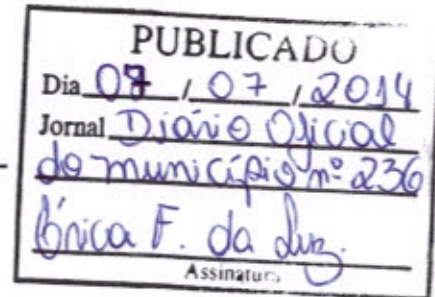 PUBLICADO
Dia 07 / 07 / 2014
Jornal Diário Oficial
do município nº 236
Érica F. da Luz.
Assinatura